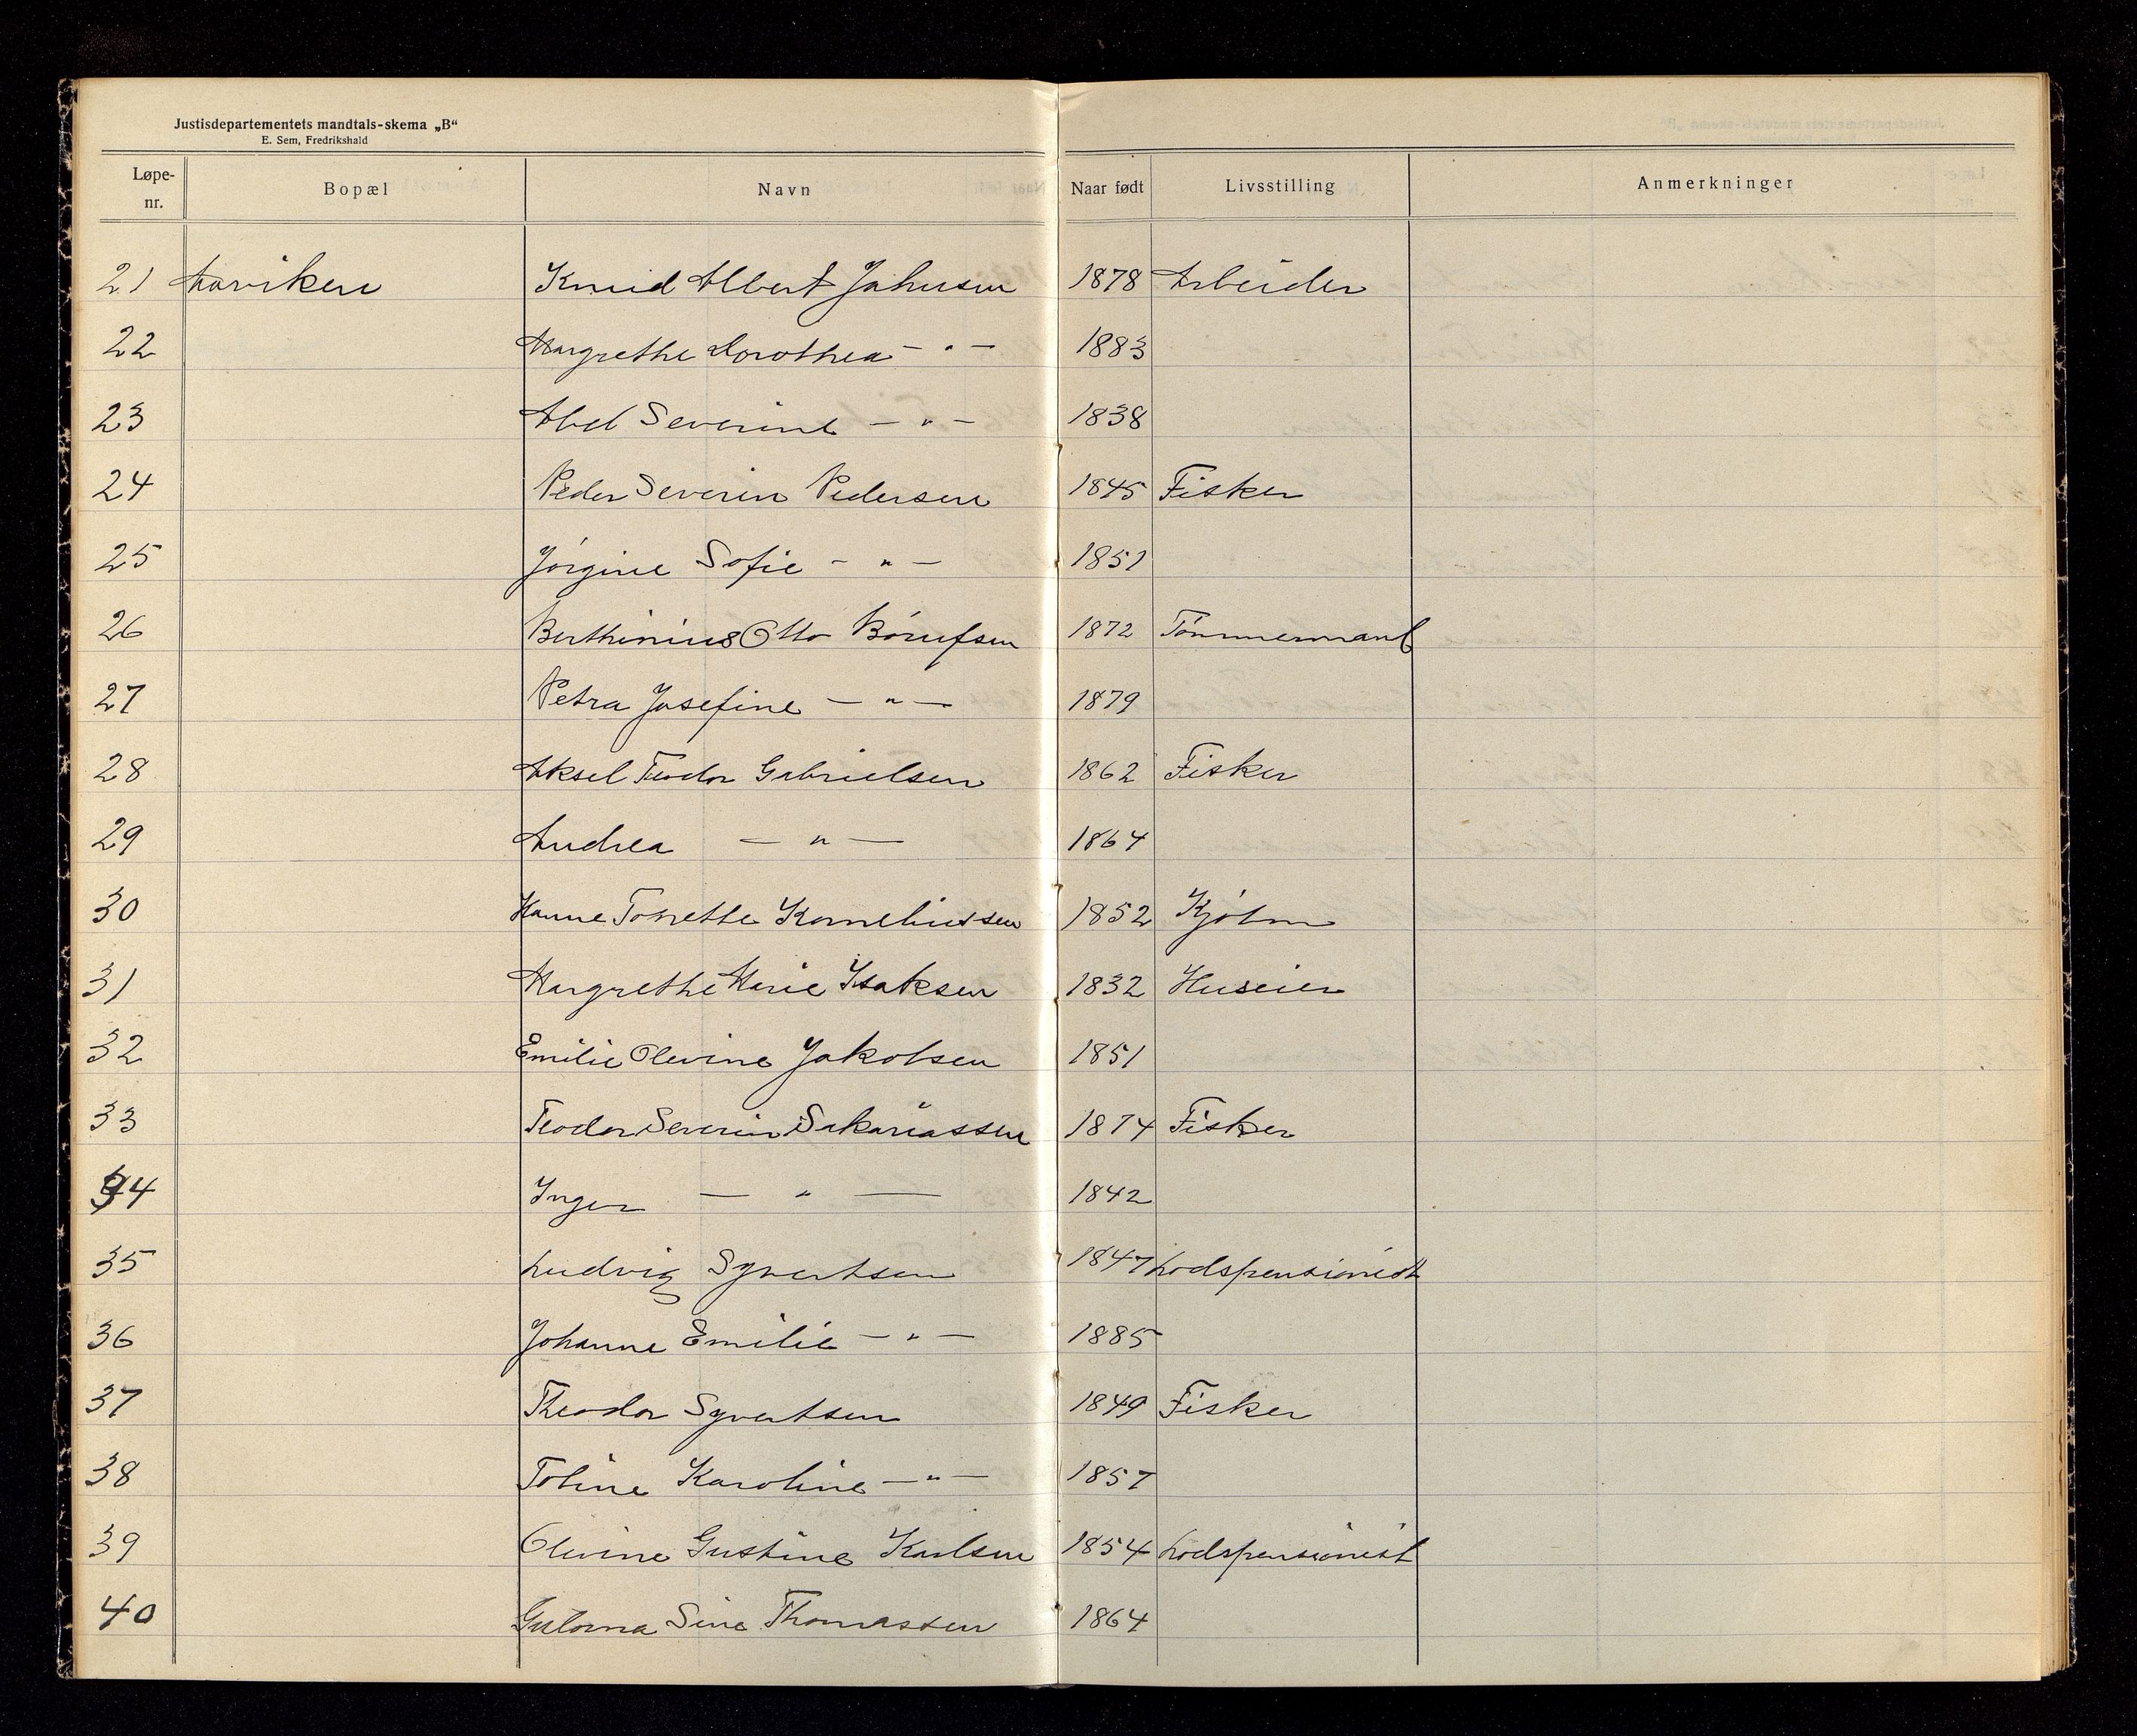 Justisdepartementets mandtals-skema „B“
E. Sem, Fredrikshald
Løpe-nr. Bopæl Navn Naar født Livsstilling Anmerkninger
21 Aarviken Knud Albert Johnsen 1878 Arbeider
22 Margrethe Dorothea - " - 1883
23 Abel Severine - " - 1838
24 Peder Severin Pedersen 1845 Fisker
25 Jørgine Sofie - " - 1851
26 Berthinius Otto Börufsen 1872 Tømmermand
27 Petra Josefine - " - 1879
28 Aksel Teodor Gabrielsen 1862 Fisker
29 Andrea - " - 1864
30 Hanne Tomette Korneliussen 1852
31 Margrethe Marie Isaksen 1832 Huseier
32 Emilie Olevine Jakobsen 1851
33 Teodor Severin Sakariassen 1874 Fisker
34 Inger - " - 1842
35 Ludvig Syvertsen 1847 Lodspensionist
36 Johanne Emilie - " - 1885
37 Theodor Syvertsen 1849 Fisker
38 Toline Karoline - " - 1857
39 Olevine Gustine Karlsen 1854 Lodspensionist
40 Gulowna Sine Thomassen 1864